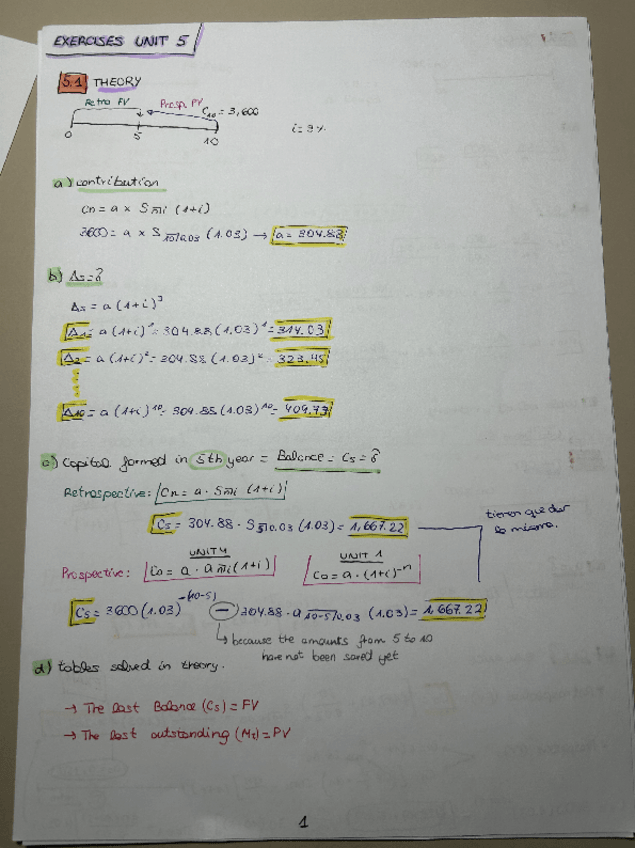 EXERCISES UNIT 5
5.1 THEORY
Retro FV Prosp. PV C₁₀ = 3,600
0 5 10 i = 3%
a) contribution
Cn = a × S n̅|i (1+i)
3600 = a × S 10̅|0.03 (1.03) → a = 304.88
b) Δs = ?
Δs = a (1+i)^s
Δ1 = a (1+i)¹ = 304.88 (1.03)¹ = 314.03
Δ2 = a (1+i)² = 304.88 (1.03)² = 323.45
Δ10 = a (1+i)¹⁰ = 304.88 (1.03)¹⁰ = 409.73
c) Capital formed in 5th year = Balance = C5 = ?
Retrospective: Cn = a · S n̅|i (1+i)
C5 = 304.88 · S 5̅|0.03 (1.03) = 1,667.22
tienen que dar
lo mismo.
UNIT 4 UNIT 1
Prospective: Co = a · a n̅|i (1+i) Co = a · (1+i)⁻ⁿ
C5 = 3600 (1.03)^-(10-5) − 304.88 · a 10-5|0.03 (1.03) = 1,667.22
↳ because the amounts from 5 to 10
have not been saved yet
d) tables solved in theory.
→ The last Balance (Cs) = FV
→ The last outstanding (Ms) = PV
1